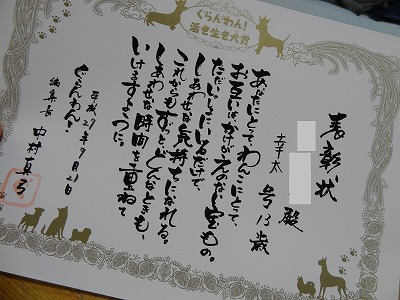 ぐらんわん!
活き生き犬賞
表彰状
殿
幸太号 13歳
あなたにとって、わんこにとって、
お互いが、かけがえのない宝もの。
ただ、いっしょにいるだけで、
しあわせな気持ちになれる。
これからも、ずっと、どんなときも、
しあわせな時間を重ねて
いけますように。
平成27年9月21日
ぐらんわん!
編集長 中村真弓